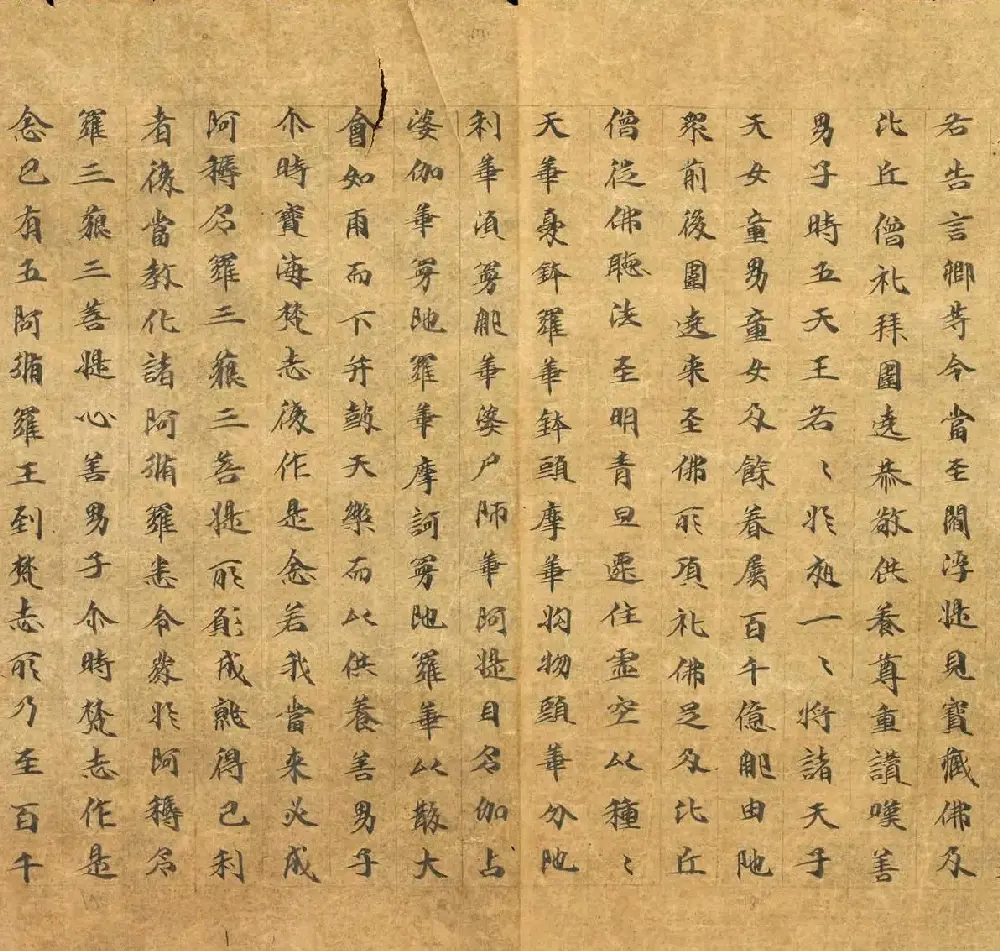 各告言卿等今當至閻浮提見寶藏佛及
比丘僧礼拜圍遶恭敬供養尊重讃嘆善
男子時五天王名〻於夜一〻將諸天子
天女童男童女及餘眷屬百千億那由阤
衆前後圍遶来至佛所頂礼佛足及比丘
僧從佛聽法至明青旦遷住虛空以種〻
天華憂鉢羅華鉢頭摩華拘物頭華分阤
利華湏曼那華婆尸師華阿提目多伽占
婆伽華曼阤羅華摩訶曼阤羅華以散大
會如雨而下并鼓天樂而以供養善男子
尒時寶海梵志復作是念若我當来必成
阿耨多羅三藐三菩提所願成就得己利
者復當教化諸阿脩羅悉令發於阿耨多
羅三藐三菩提心善男子尒時梵志作是
念已有五阿脩羅王到梵志所乃至百千